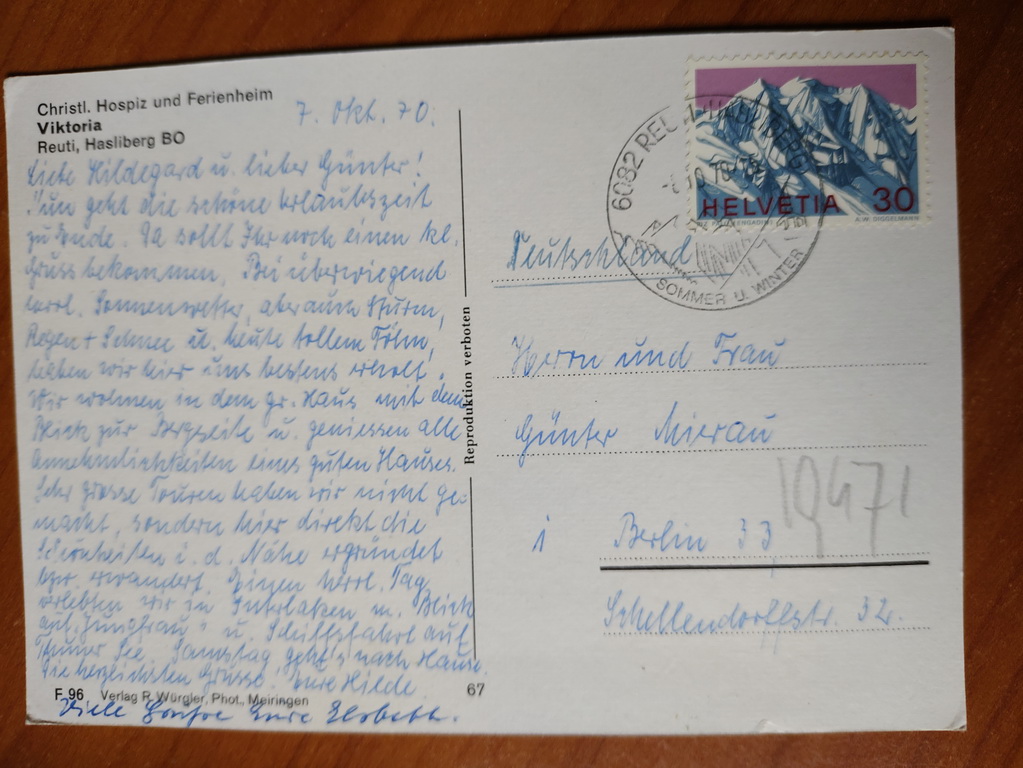 Christl. Hospiz und Ferienheim
Viktoria
Reuti, Hasliberg BO
7. Okt. 70.
Liebe Hildegard u. lieber Günter!
Nun geht die schöne Urlaubszeit
zu Ende. Da sollt Ihr noch einen kl.
Gruss bekommen. Bei überwiegend
herrl. Sonnenwetter, aber auch Sturm,
Regen + Schnee u. heute tollem Föhn,
haben wir hier uns bestens erholt.
Wir wohnen in dem gr. Haus mit dem
Blick zur Bergseite u. geniessen alle
Annehmlichkeiten eines guten Hauses.
Sehr grosse Touren haben wir nicht ge-
macht, sondern hier direkt die
Schönheiten i. d. Nähe ergründet
bzw. erwandert. Einen herrl. Tag
erlebten wir in Interlaken m. Blick
auf "Jungfrau" u. Schiffsfahrt auf
Thuner See. Samstag geht's nach Hause.
Die herzlichsten Grüsse! Eure Hilde
F 96 Verlag R. Würgler, Phot., Meiringen
67
Viele Eure Elsbeth.
Reproduktion verboten
HELVETIA 30
A.W. DIGGELMANN
6082 REUTI (HASLIBERG)
SOMMER U. WINTER
Deutschland
Herrn und Frau
Günter Mierau
i Berlin 33
Schellendorffstr. 32.
19471